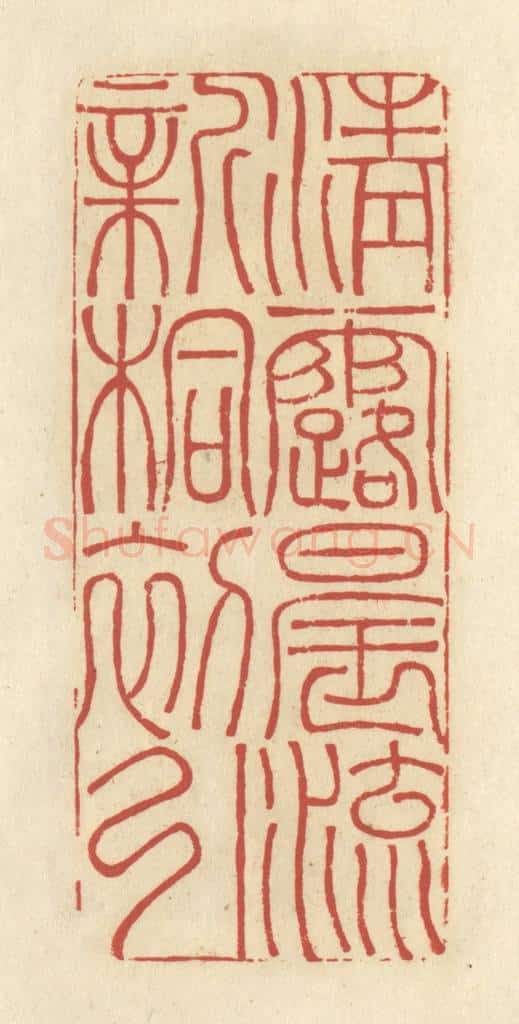 清露晨流
新桐初引
Shufawang.CN